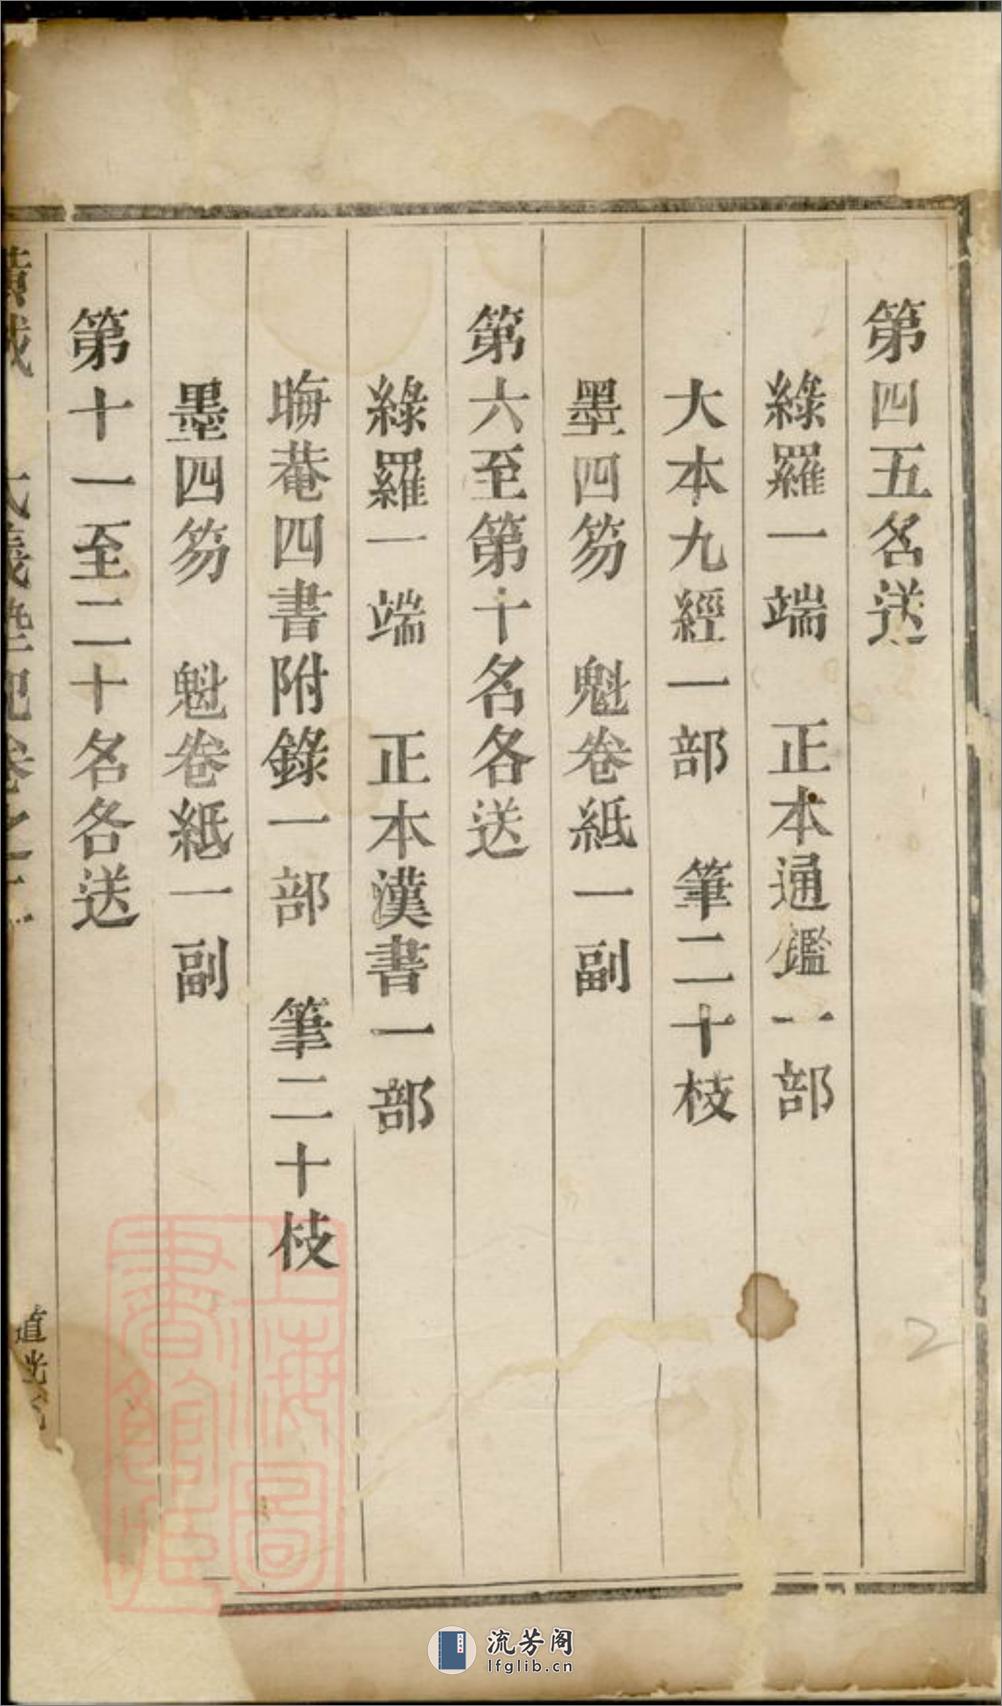 第四五名送
綠羅一端　正本通鑑一部
大本九經一部　筆二十枝
墨四笏　魁卷紙一副
第六至第十名各送
綠羅一端　正本漢書一部
晦菴四書附錄一部　筆二十枝
墨四笏　魁卷紙一副
第十一至二十名各送
卷之
道光
上海圖
書館藏
2
流芳阁
lfglib.cn